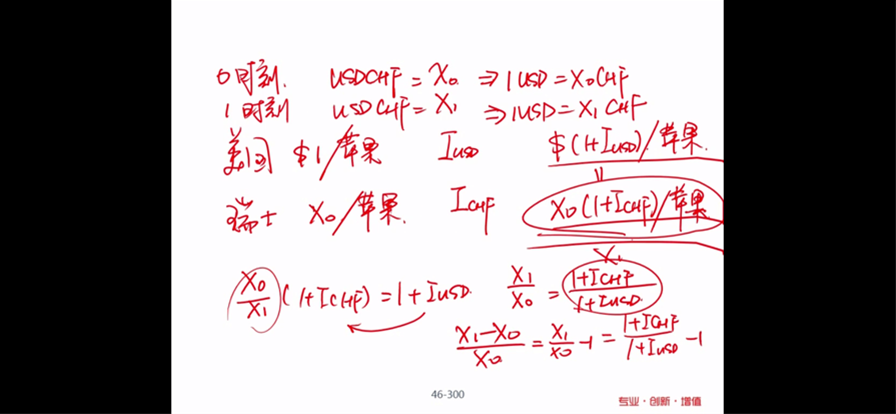 0时刻. USDCHF = X0 ⇒ 1 USD = X0 CHF
1时刻 USDCHF = X1 ⇒ 1USD = X1 CHF
美国 $1/苹果 IUSD $(1+IUSD)/苹果.
瑞士 X0/苹果. ICHF X0(1+ICHF)/苹果
X1
X0/X1 (1+ICHF) = 1+IUSD. X1/X0 = (1+ICHF)/(1+IUSD)
(X1-X0)/X0 = X1/X0 -1 = (1+ICHF)/(1+IUSD) -1
46-300
专业·创新·增值